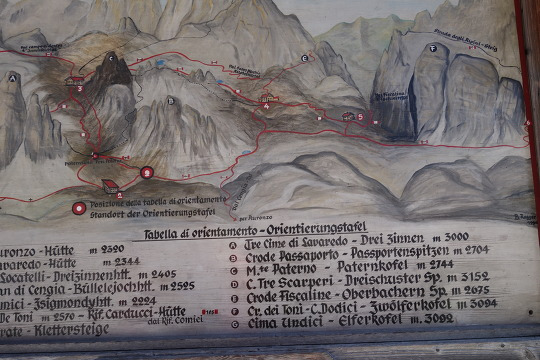 A
C
E
F
Strada degli Alpini-Steig
3
B
4
5
2
per Auronzo
Posizione della tabella di orientamento
Standort der Orientierungstafel
Tabella di orientamento - Orientierungstafel
uronzo-Hütte m 2320
avaredo-Hütte m 2344
Locatelli-Dreizinnenhtt. m 2405
an di Cengia-Büllelejochhtt. m 2525
mici-Zsigmondyhtt. m 2224
De Toni m 2570 - Rif. Carducci-Hütte
dal Rif. Comici
rrate-Klettersteige
A Tre Cime di Lavaredo - Drei Zinnen m 3000
B Crode Passaporto - Passportenspitzen m 2704
C M.te Paterno - Paternkofel m 2744
D C. Tre Scarperi - Dreischuster Sp. m 3152
E Crode Fiscaline - Oberbachern Sp. m 2675
F Cr. dei Toni-C. Dodici - Zwölferkofel m 3094
G Cima Undici - Elferkofel m 3092